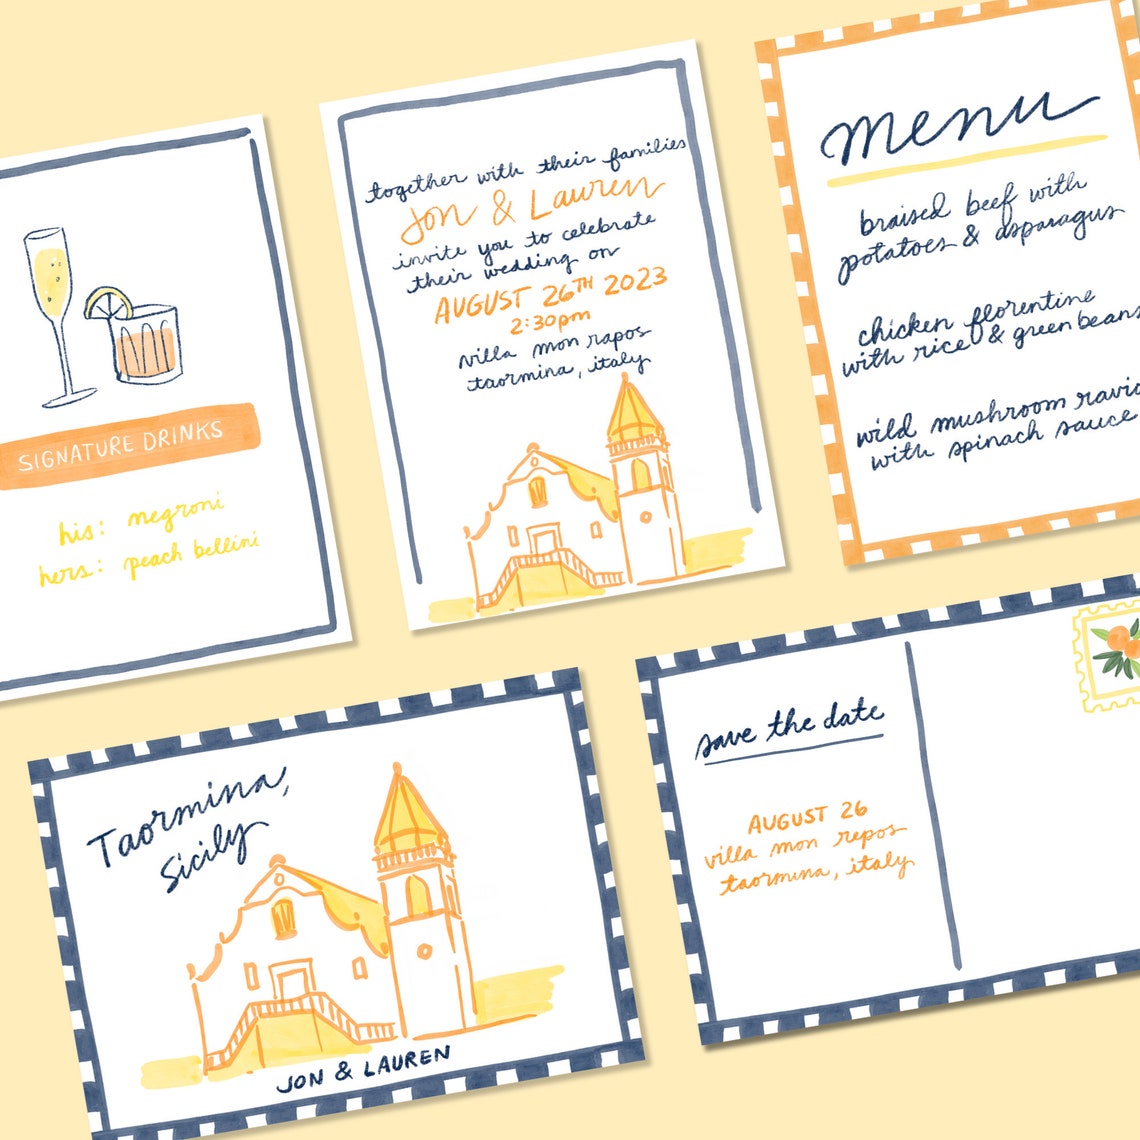 SIGNATURE DRINKS
his: negroni
hers: peach bellini
together with their families
Jon & Lauren
invite you to celebrate
their wedding on
AUGUST 26TH 2023
2:30pm
villa mon rapos
taormina, italy
menu
braised beef with
potatoes & asparagus
chicken florentine
with rice & green beans
wild mushroom ravio
with spinach sauce
Taormina,
Sicily
JON & LAUREN
save the date
AUGUST 26
villa mon repos
taormina, italy